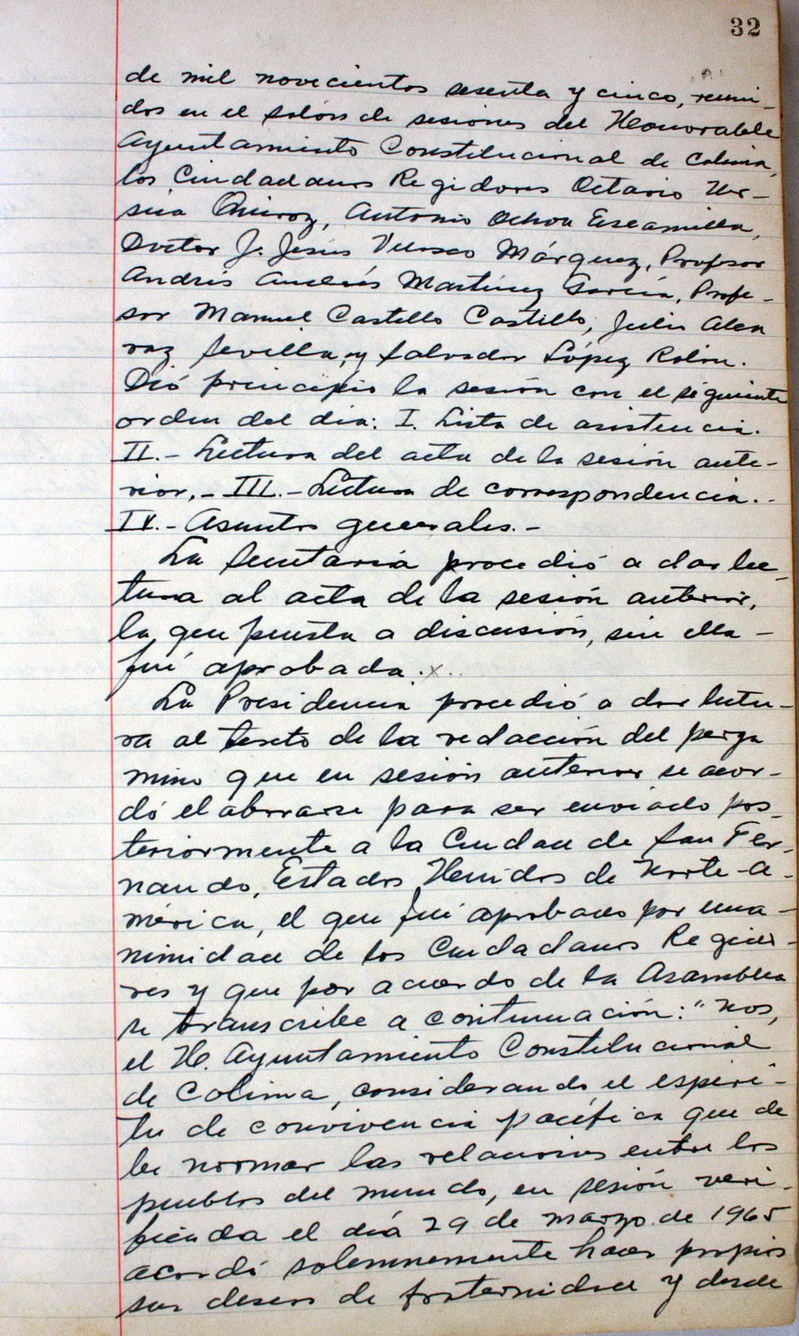 32
de mil novecientos sesenta y cinco, reuni-
dos en el salón de sesiones del Honorable
Ayuntamiento Constitucional de Colima,
los Ciudadanos Regidores Octavio Ur-
súa Quiroz, Antonio Ochoa Escamilla,
Doctor J. Jesús Velasco Márquez, Profesor
Andrés Martínez García, Profe-
sor Manuel Castillo Castillo, Julio Alca
raz Sevilla, y Salvador López Rolón.
Dió principio la sesión con el siguiente
orden del dia: I. Lista de asistencia.
II.- Lectura del acta de la sesión ante-
rior.- III.- Lectura de correspondencia..
IV.- Asuntos generales.-
La Secretaría procedió a dar lec-
tura al acta de la sesión anterior,
la que puesta a discusión, sin ella -
fué aprobada.x..
La Presidencia procedió a dar lectu-
ra al texto de la redacción del perga
mino que en sesión anterior se acor-
dó elaborarse para ser enviado pos-
teriormente a la Ciudad de San Fer-
nando, Estados Unidos de Norte-a-
mérica, el que fué aprobado por una-
nimidad de los Ciudadanos Regido-
res y que por acuerdo de la Asamblea
se transcribe a continuación: "Nos,
el H. Ayuntamiento Constitucional
de Colima, considerando el espíri-
tu de convivencia pacífica que de
be normar las relaciones entre los
pueblos del mundo, en sesión veri-
ficada el día 29 de marzo de 1965
acordó solemnemente hacer propios
sus deseos de fraternidad y desde